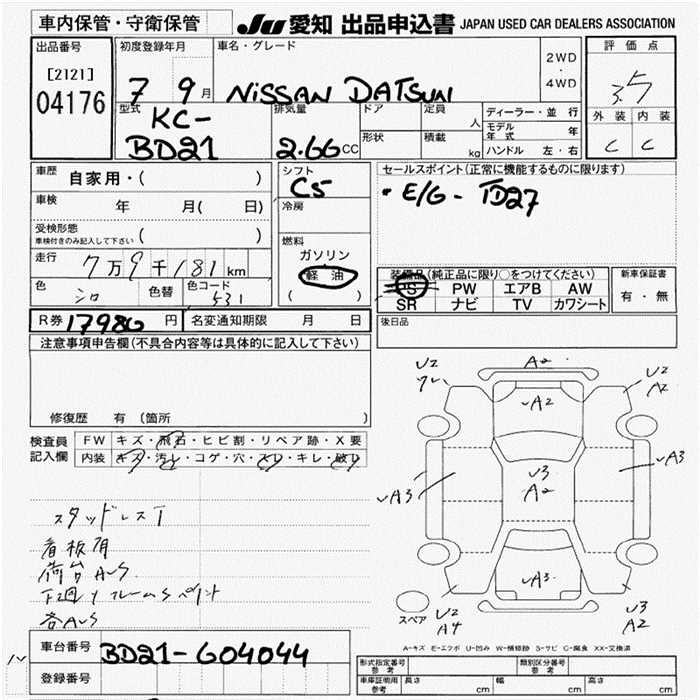 車内保管・守衛保管
JU 愛知 出品申込書 JAPAN USED CAR DEALERS ASSOCIATION
出品番号
[2121]
04176
初度登録年月
7 9月
車名・グレード
NISSAN DATSUN
2WD
・
4WD
評価点
3.5
外装 内装
C C
型式
KC-
BD21
排気量
2.66CC
ドア
形状
定員
人
積載
kg
ディーラー・並行
モデル年式 年
ハンドル 左・右
車歴
自家用・( )
車検 年 月( 日)
受検形態
車検付きのみ記入して下さい ( )
走行
7万9千181km
色
シロ
色替
色コード
531
シフト
C5
冷房
燃料
ガソリン
軽油
( )
セールスポイント(正常に機能するものに限ります)
・E/G - TD27
装備品(純正品に限り○をつけてください)
PS PW エアB AW
SR ナビ TV カワシート
新車保証書
有・無
後日品
R券 17980円
名変通知期限 月 日
注意事項申告欄(不具合内容等は具体的に記入して下さい)
修復歴 有(箇所 )
検査員
記入欄
FW キズ・飛石・ヒビ割・リペア跡・X要
内装 キズ・汚レ・コゲ・穴・スレ・キレ・破レ
スタッドレスT
看板有
荷台AUS
各AUS
車台番号
BD21-604044
登録番号
A2
U2
U2
A2
A2
A3
A3
U3
A2
A3
スペア
U2
A4
U3
A2
A-キズ E-エクボ U-凹み W-補修跡 S-サビ C-腐食 XX-交換済
形式指定番号
参考
類別区分番号
参考
車庫証明用
参考
長さ cm
幅 cm
高さ cm